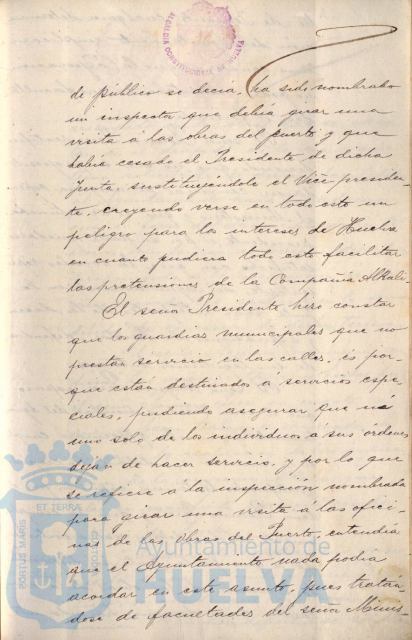 ALCALDIA CONSTITUCIONAL DE HUELVA
de público se decia, ha sido nombrado
un inspector que debia girar una
visita á las obras del puerto y que
habia cesado el Presidente de dicha
Junta, sustituyéndole el Vice-presiden-
te, creyendo verse en todo esto un
peligro para los intereses de Huelva
en cuanto pudiera todo esto facilitar
las pretensiones de la Compañia Alkali-
El señor Presidente hizo constar
que los guardias municipales que no
prestan servicio en las calles, es por-
que están destinados á servicios espe-
ciales, pudiendo asegurar que ni
uno solo de los individuos á sus órdenes
dejan de hacer servicio, y por lo que
se refiere á la inspección nombrada
para girar una visita á las ofici-
nas de las obras del Puerto, entendia
que el Ayuntamiento nada podia
acordar en este asunto, pues tratán-
dose de facultades del señor Minis-
PORTUS MARIS ET TERRÆ
Ayuntamiento de
HUELVA